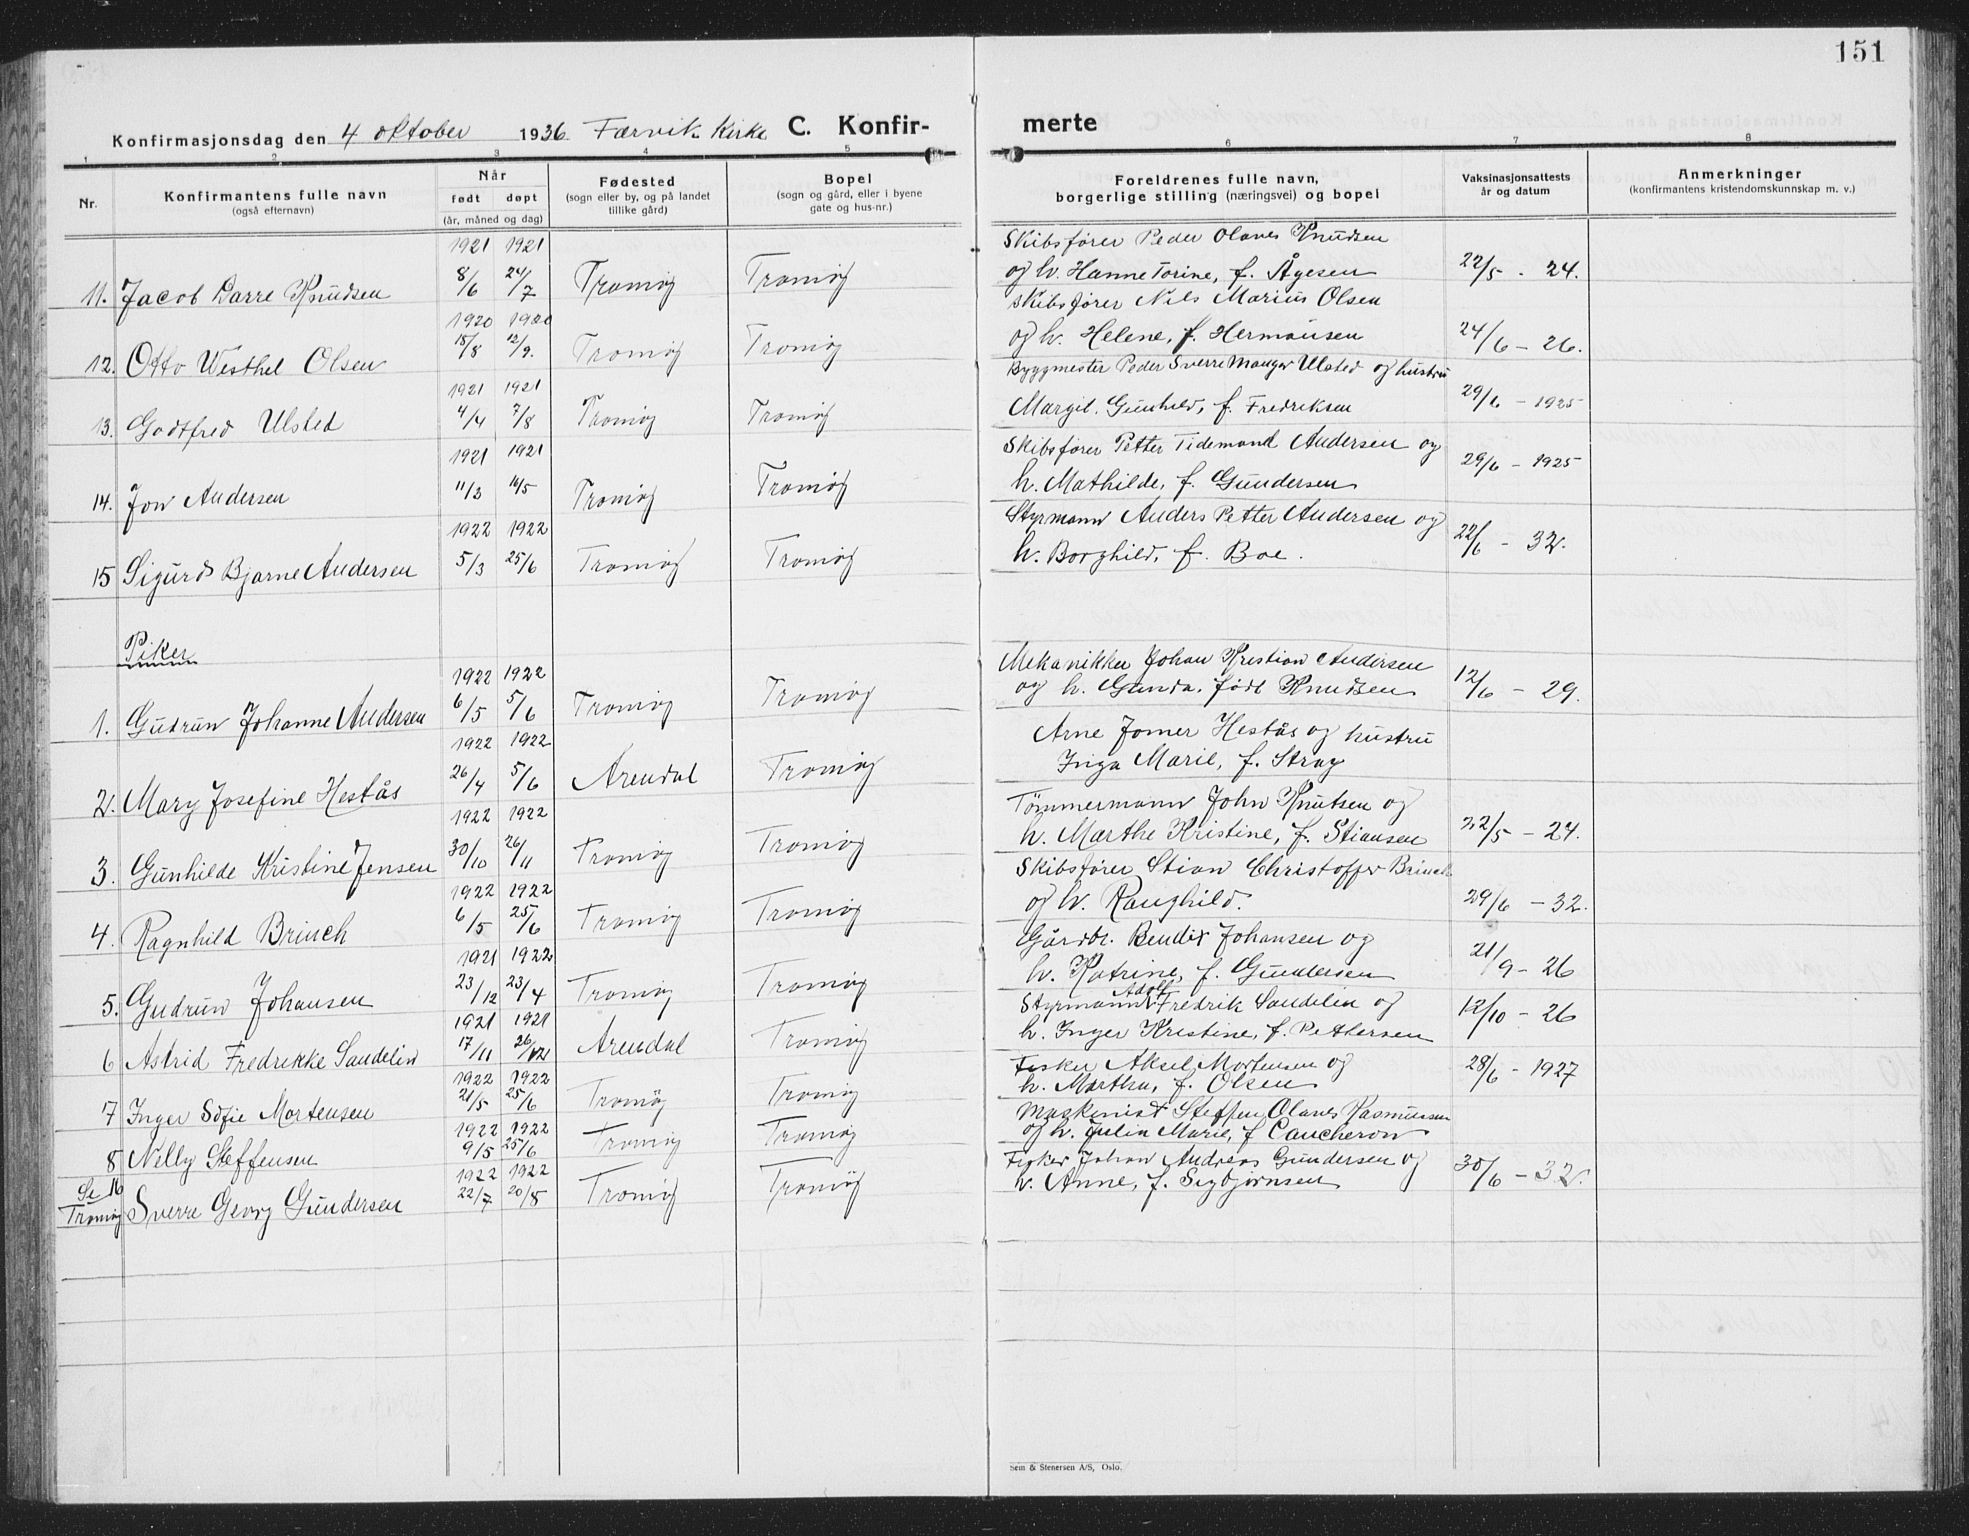 151
Konfirmasjonsdag den 4 oktober 1936 Færvik Kirke C. Konfir- merte
1 2 3 4 5 6 7 8
Nr. Konfirmantens fulle navn (også efternavn) Når født døpt (år, måned og dag) Fødested (sogn eller by, og på landet tillike gård) Bopel (sogn og gård, eller i byene gate og hus-nr.) Foreldrenes fulle navn, borgerlige stilling (næringsvei) og bopel Vaksinasjonsattests år og datum Anmerkninger (konfirmantens kristendomskunnskap m. v.)
1921 1921 Skibsfører Peder Olaves Knudsen
11. Jacob Darre Knudsen 8/6 24/7 Tromøy Tromøy og h. Hanne Torine, f. Ågesen 22/5 - 24.
1920 1920 Skibsfører Nils Marius Olsen
12. Otto Westhel Olsen 15/8 12/9. Tromøy Tromøy og h. Helene, f. Hermansen 24/6 - 26.
1921 1921 Byggmester Peder Sverre Manger Ulsted og hustru
13. Godtfred Ulsted 4/4 7/8 Tromøy Tromøy Margit Gunhild, f. Fredriksen 29/6 - 1925
1921 1921 Skibsfører Petter Tidemand Andersen og
14. Jon Andersen 11/3 16/5 Tromøy Tromøy h. Mathilde, f. Gundersen 29/6 - 1925
1922 1922 Styrmann Anders Petter Andersen og
15 Sigurd Bjarne Andersen 5/3 25/6 Tromøy Tromøy h. Borghild, f. Boe. 22/6 - 32.
Piker
1922 1922 Mekanikker Johan Kristian Andersen
1. Gudrun Johanne Andersen 6/5 5/6 Tromøy Tromøy og h. Gunda, født Knudsen 12/6 - 29.
1922 1922 Arne Jomer Hestås og hustru
2. Mary Josefine Hestås 26/4 5/6 Arendal Tromøy Inga Marie, f. Stray
1922 1922 Tømmermann John Knutsen og
3. Gunhilde Kristine Jensen 30/10 26/11 Tromøy Tromøy h. Marthe Kristine, f. Stiansen 22/5 - 24.
1922 1922 Skibsfører Stian Christoffer Brinch
4. Ragnhild Brinch 6/5 25/6 Tromøy Tromøy og h. Ranghild. 29/6 - 32.
1921 1922 Gårdbr. Bendix Johansen og
5. Gudrun Johansen 23/12 23/4 Tromøy Tromøy h. Katrine, f. Gundersen 21/9 - 26
1921 1921 Styrmann Adolf Fredrik Sandelin og
6 Astrid Fredrikke Sandelin 17/11 26/12 Arendal Tromøy h. Inger Kristine, f. Pettersen 12/10 - 26
1922 1922 Fisker Aksel Mortensen og
7 Inger Sofie Mortensen 21/5 25/6 Tromøy Tromøy h. Martha, f. Olsen 28/6 - 1927
1922 1922 Maskinist Steffen Olaves Rasmussen
8 Nelly Steffensen 9/5 25/6 Tromøy Tromøy og h. Julia Marie, f. Caucheron
1922 1922 Fisker Johan Andreas Gundersen og
Se 16 Tromøy Sverre Georg Gundersen 22/7 20/8 Tromøy Tromøy h. Anne, f. Sigbjørnsen 30/6 - 32.
Sem & Stenersen A/S, Oslo.